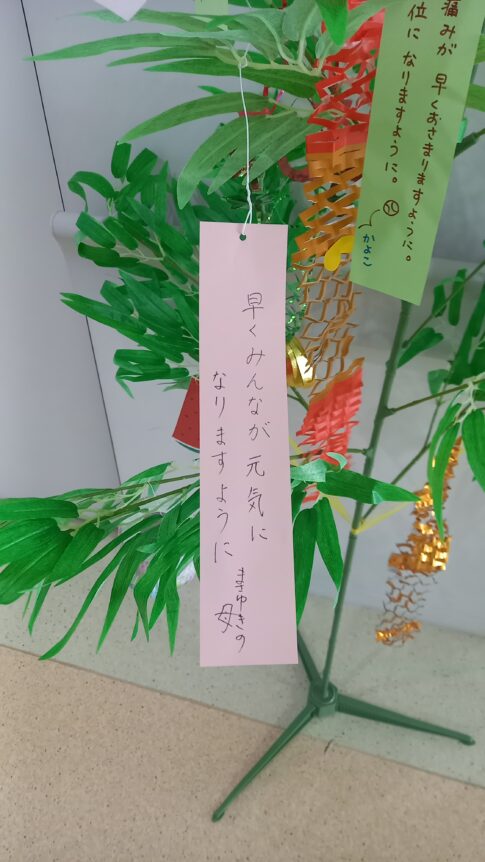 痛みが 早くおさまりますように。
位に なりますように。
かよこ
早くみんなが元気に
なりますように
まさゆきの
母